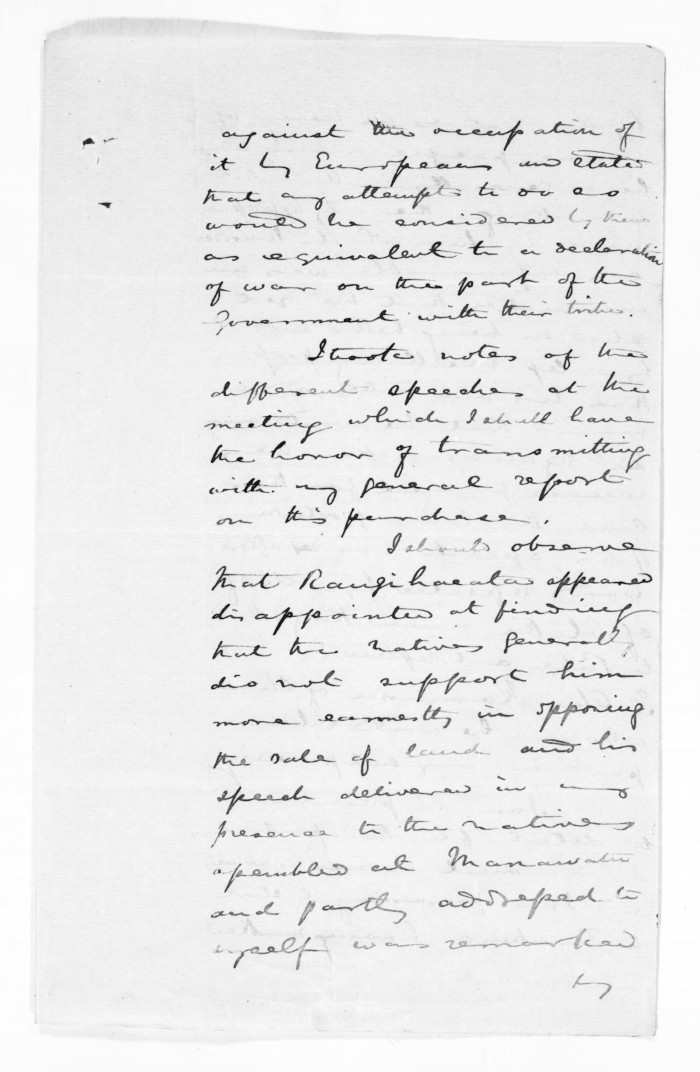 against the occupation of
it by Europeans and stated
that any attempts to do so
would be considered by them
as equivalent to a declaration
of war on the part of the
Government with their tribe.
I took notes of the
different speeches at the
meeting which I shall have
the honor of transmitting
with my general report
on this purchase.
I should observe
that Rangihaeata appeared
disappointed at finding
that the natives generally
did not support him
more earnestly in opposing
the sale of land and his
speech delivered in my
presence to the natives
assembled at Manawatu
and partly addressed to
myself was remarked
by